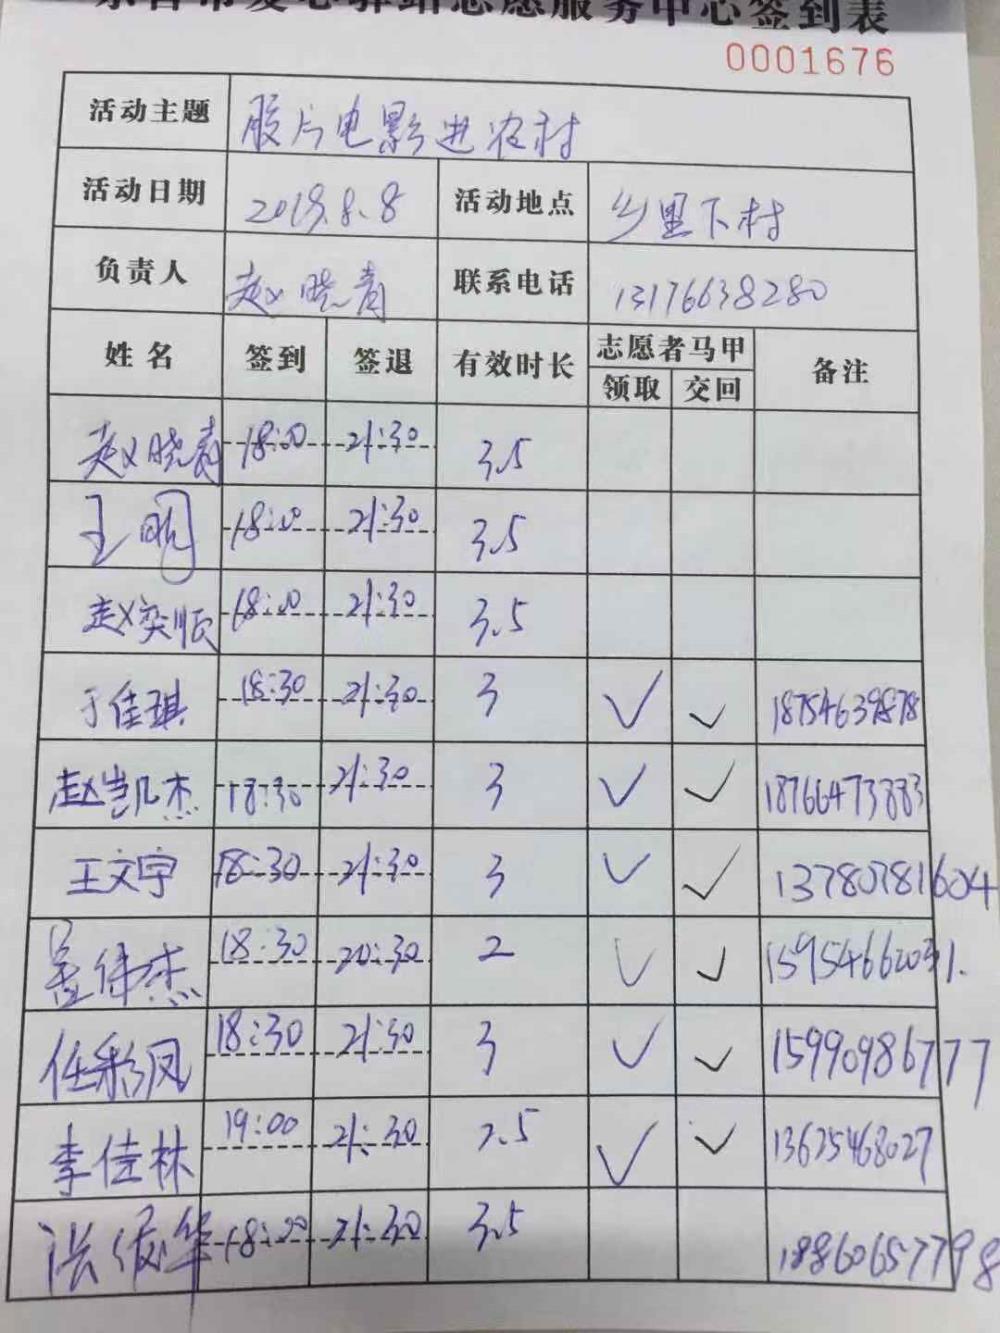 东营市爱心驿站志愿服务中心签到表
0001676
活动主题 胶片电影进农村
活动日期 2019.8.8 活动地点 乡里下村
负责人 赵晓青 联系电话 13176638280
姓名 签到 签退 有效时长 志愿者马甲 备注
领取 交回
赵晓青 18:00 21:30 3.5
王明 18:00 21:30 3.5
赵奕顺 18:00 21:30 3.5
于佳琪 18:30 21:30 3 ✓ ✓ 18754639878
赵凯杰 18:30 21:30 3 ✓ ✓ 18766473883
王文宇 18:30 21:30 3 ✓ ✓ 13780781604
伟杰 18:30 20:30 2 ✓ ✓
任彩凤 18:30 21:30 3 ✓ ✓ 15990986777
李佳林 19:00 21:30 2.5 ✓ ✓ 13625468027
18:00 21:30 3.5 18860657798